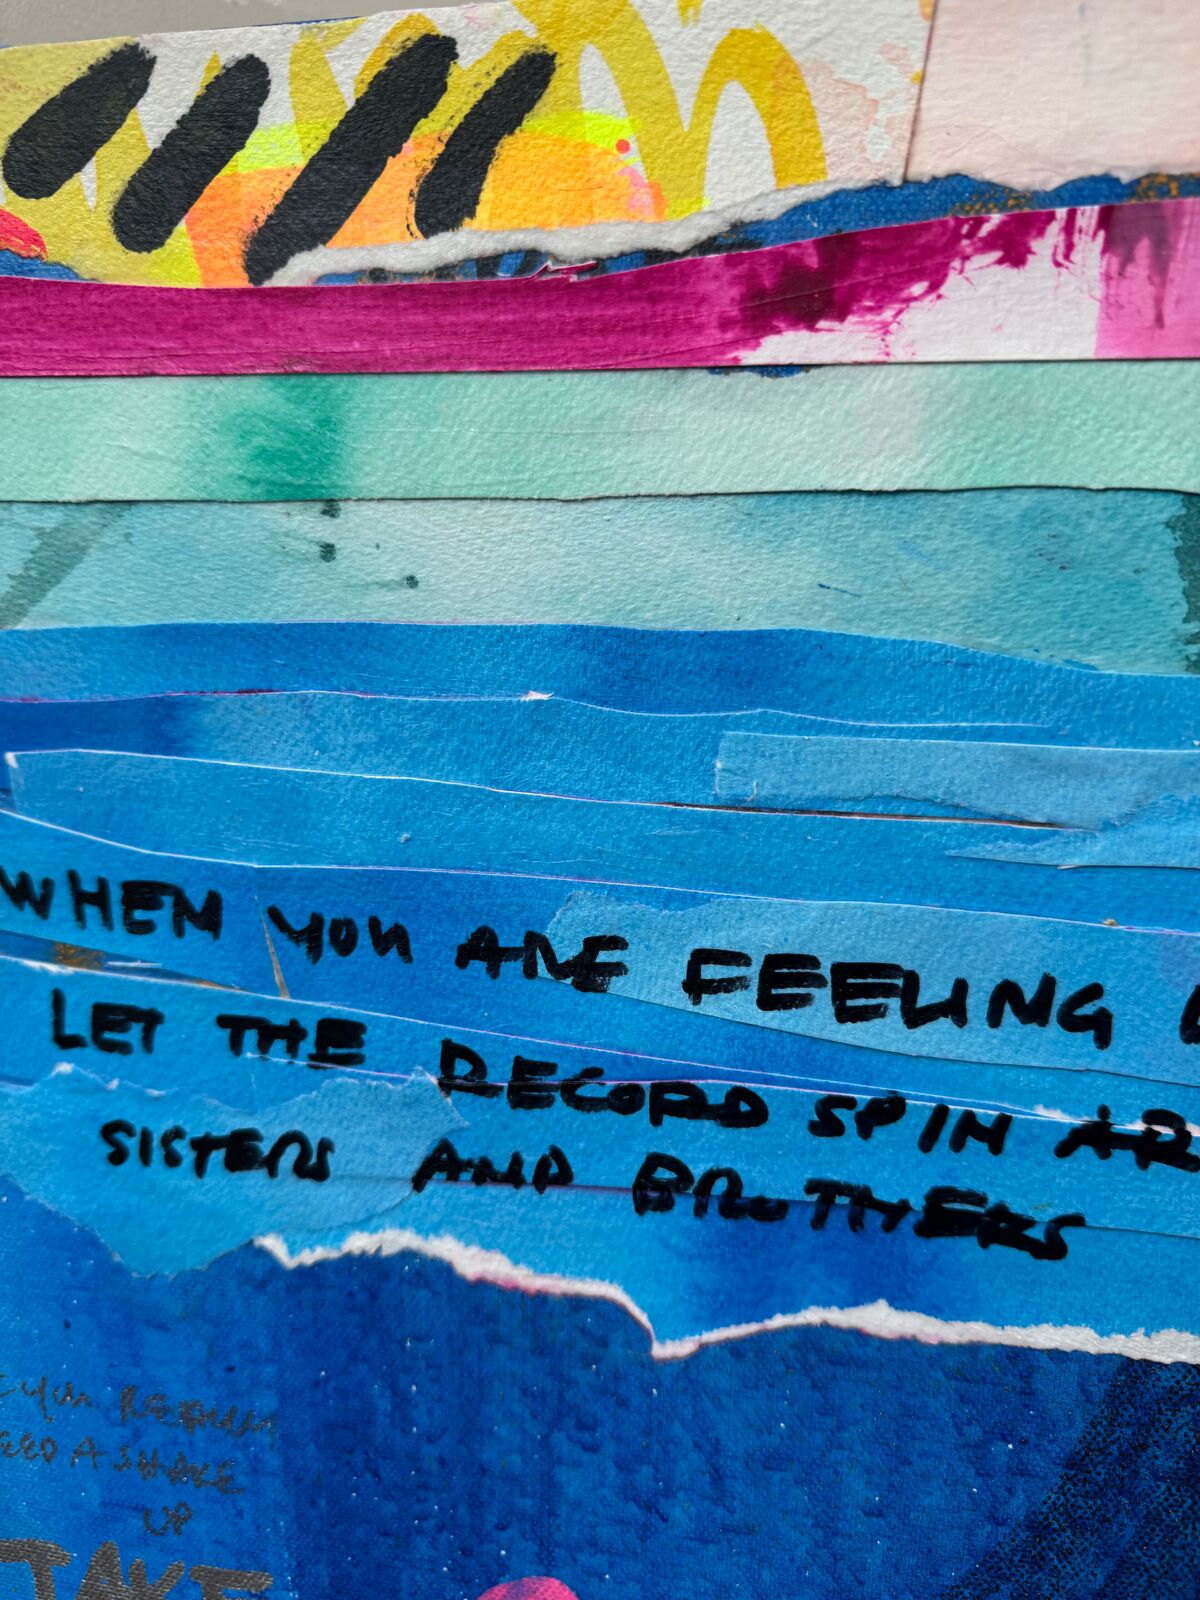 WHEN YOU ARE FEELING
LET THE RECORD SPIN AR
SISTERS AND BROTHERS
YOU REALLY
EED A SHAKE
UP
TAKE